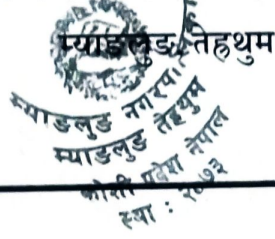 म्याङलुङ, तेह्रथुम
म्याङलुङ नगरपा
म्याङलुङ तेह्रथुम
कोशी प्रदेश नेपाल
स्था : २०७३